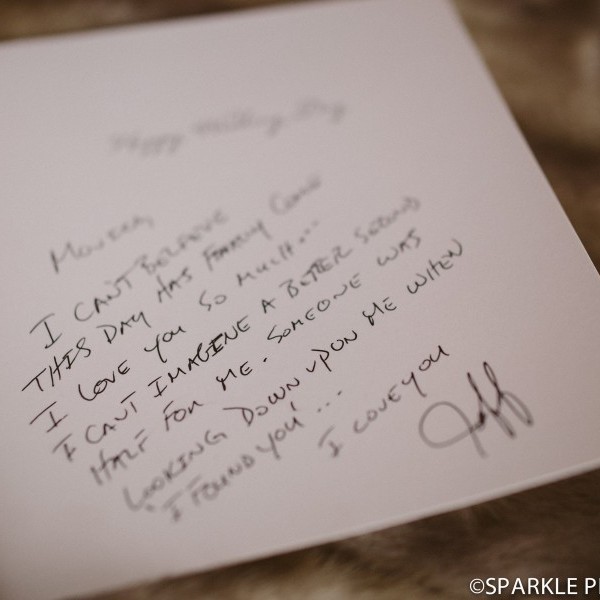 Happy Wedding Day
Monica,
I CAN'T BELIEVE
THIS DAY HAS FINALLY COME
I LOVE YOU SO MUCH...
I CAN'T IMAGINE A BETTER SECOND
HALF FOR ME. SOMEONE WAS
LOOKING DOWN UPON ME WHEN
"I FOUND YOU"...
I LOVE YOU
Jeff
©SPARKLE P